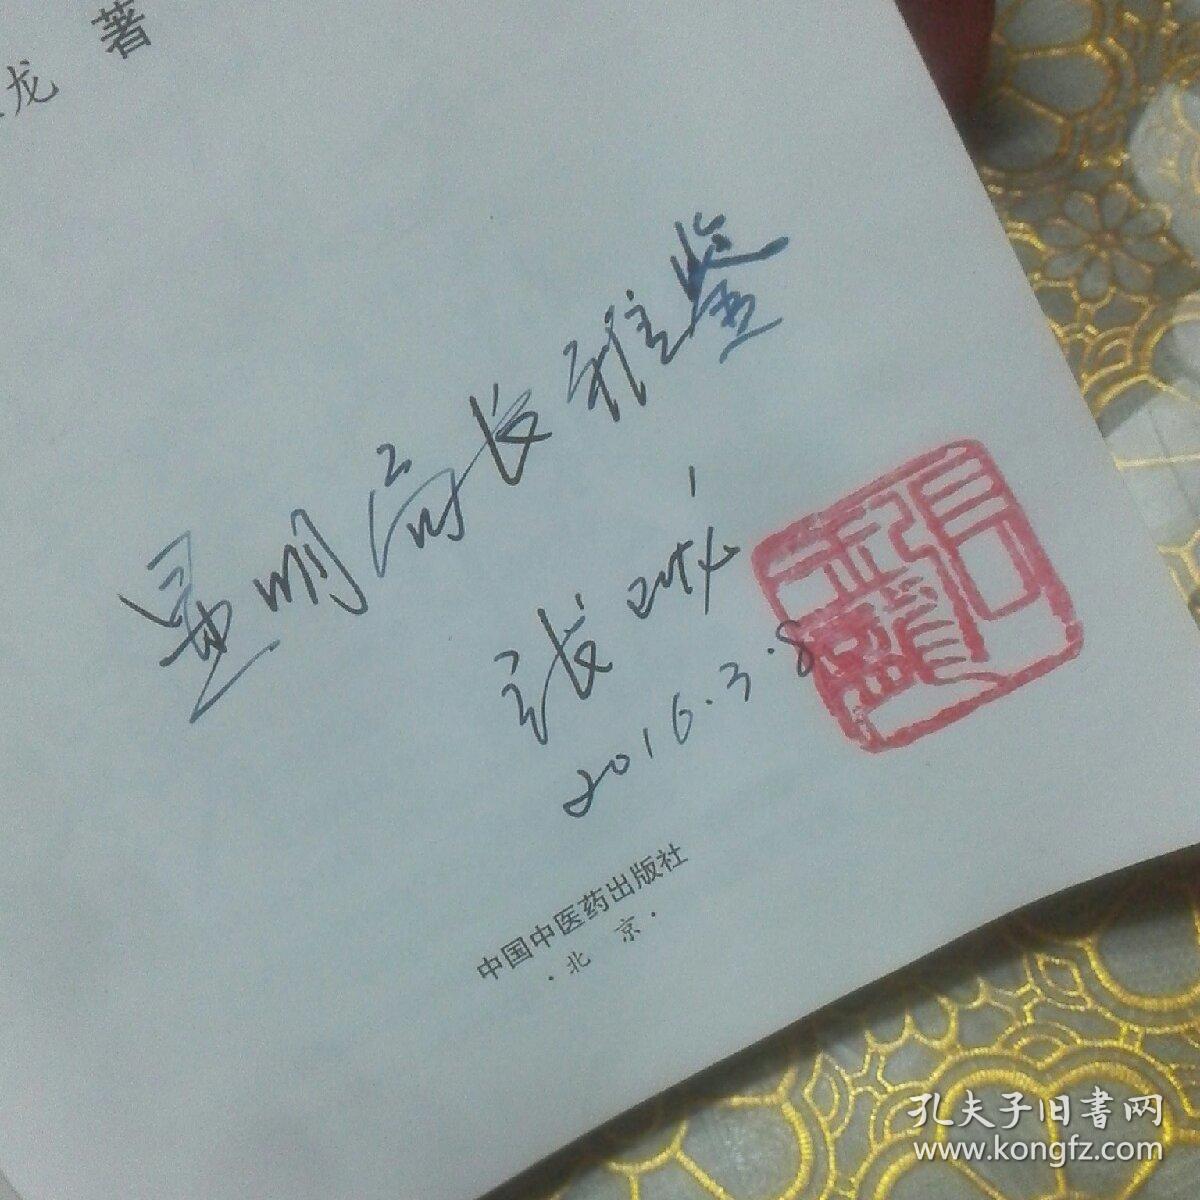 著
龙
明局长雅鉴
张
2016.3.8
中国中医药出版社
·北 京·
孔夫子旧書网
www.kongfz.com